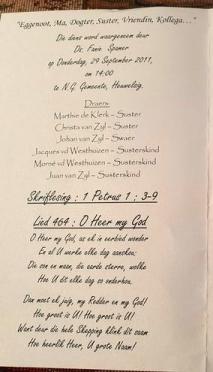 "Eggenoot, Ma, Dogter, Suster, Vriendin, Kollega..."
Die diens word waargeneem deur
Ds. Fanie Spamer
op Donderdag, 29 September 2011,
om 14:00
te N.G. Gemeente, Heuwelsig.
Draers
Marthie de Klerk – Suster
Christa van Zyl – Suster
Johan van Zyl – Swaer
Jacques vd Westhuizen – Susterskind
Morné vd Westhuizen – Susterskind
Juan van Zyl – Susterskind
Skriflesing : 1 Petrus 1 : 3-9
Lied 464 : O Heer my God
O Heer my God, as ek in eerbied wonder
En al U werke elke dag aanskou:
Die son en maan, die aarde, sterre, wolke
Hoe U dit elke dag so onderhou.
Dan moet ek juig, my Redder en my God!
Hoe groot is U! Hoe groot is U!
Want deur die hele Skepping klink dit saam
Hoe heerlik Heer, U grote Naam!